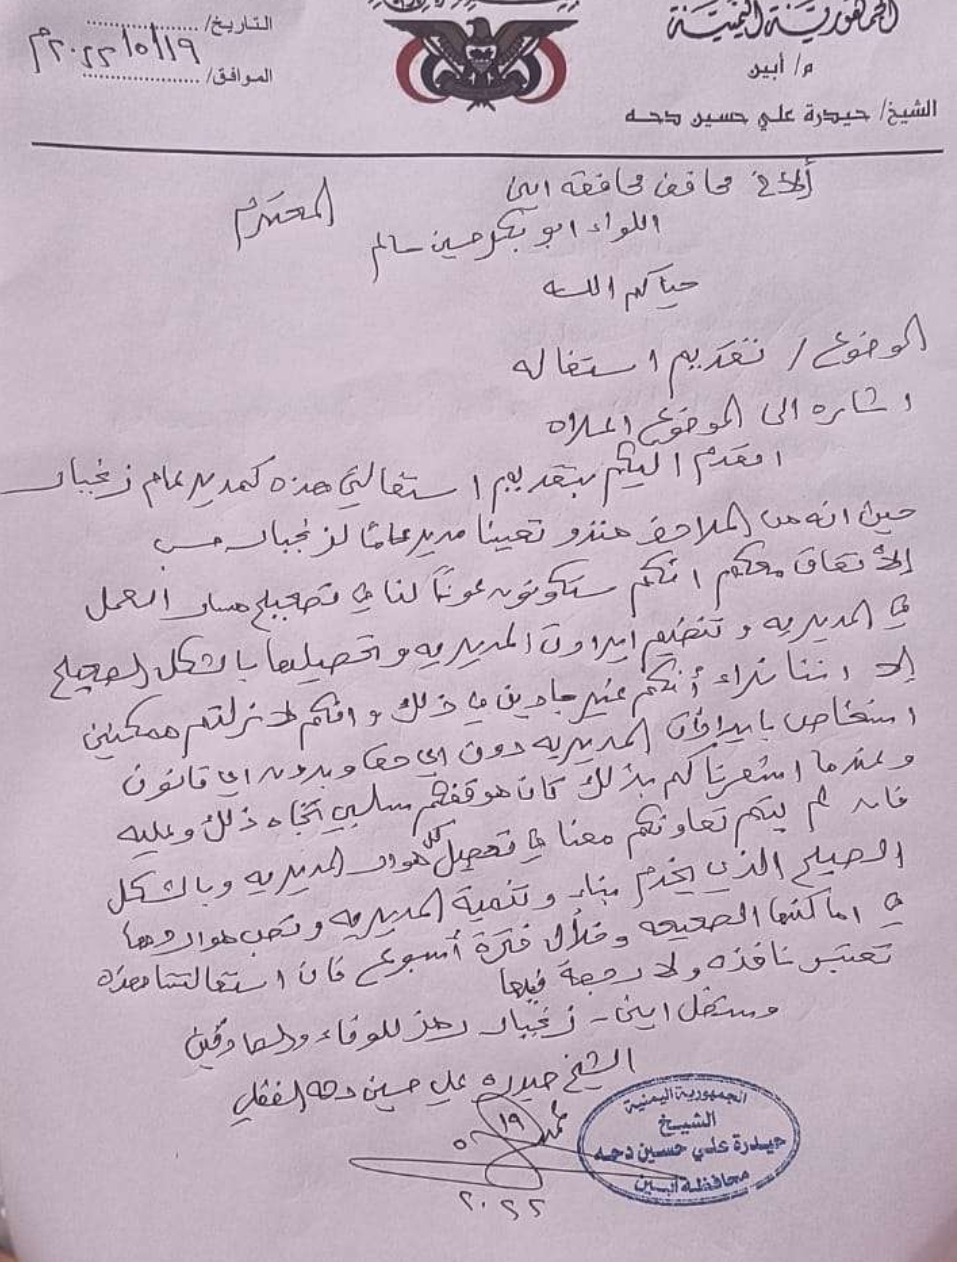 الجمهورية اليمنية
م/ أبين
الشيخ/ حيدرة علي حسين دحه
التاريخ/ ١٩/٥/٢٠٢٢م
الموافق/
ألاخ محافظ محافظه ابين المحترم
اللواء ابو بكر حسين سالم
حياكم الله
الموضوع / تقديم استقاله
اشاره الى الموضوع اعلاه
اتقدم اليكم بتقديم استقالتي هذه كمدير عام زنجبار
حيث انه من الملاحظ منذو تعينا مدير عاماً لزنجبار حسب
الأتفاق معكم انكم ستكونون عوناً لنا في تصحيح مسار العمل
في المديريه وتنضيم ايرادات المديريه وتحصيلها بالشكل الصحيح
إلا اننا نراء أنكم غير جادين في ذلك وانكم لا زلتم ممكنين
اشخاص بايرادات المديريه دون اي حق وبدون اي قانون
وعندما اشعرناكم بذلك كان موقفكم سلبي تجاه ذلك وعليه
فانه لم يتم تعاونكم معنا في تحصيل كل موارد المديريه وبالشكل
الصحيح الذي يخدم بناء وتنمية المديريه وتصب مواردها
في اماكنها الصحيحه وخلال فترة أسبوع فان استقالتنا هذه
تعتبر نافذه ولا رجعة فيها
وستظل ابين - زنجبار رمز للوفاء والصادقين
الشيخ حيدره علي حسين دحه الفضلي
١٩
٥
٢٠٢٢
الجمهورية اليمنية
الشيخ
حيدرة علي حسين دحه
محافظة أبين